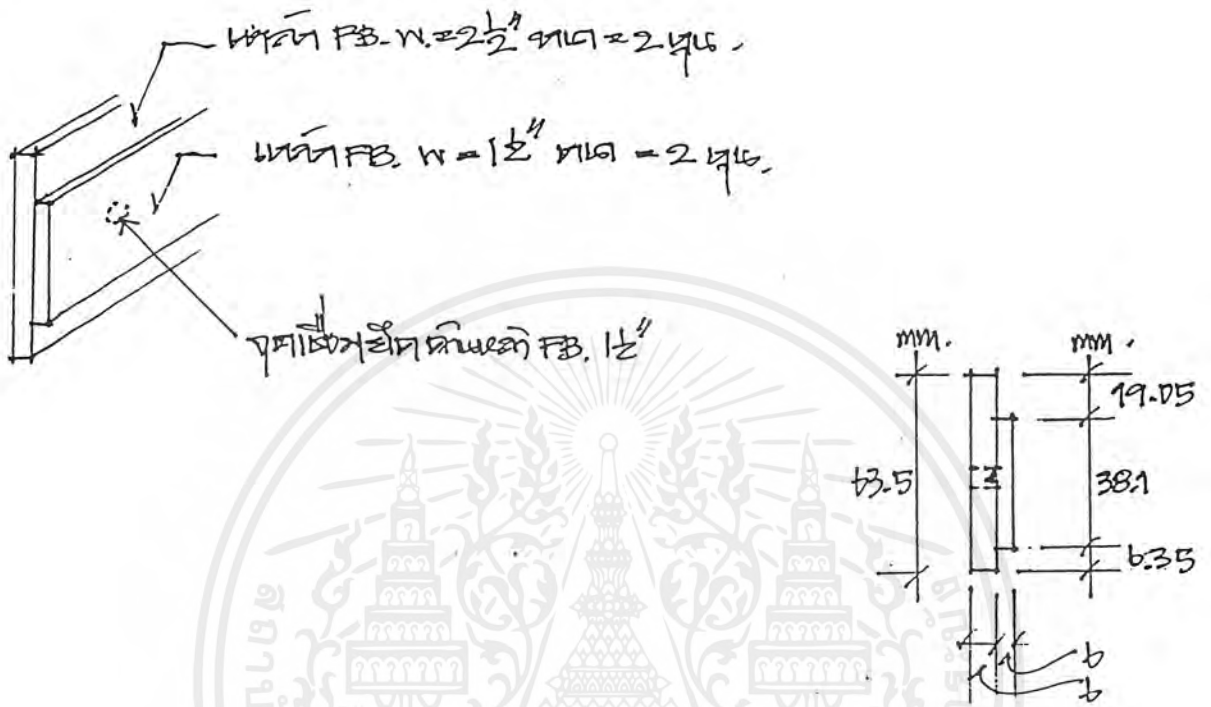 เหล็ก FB. W. = 2½" หนา = 2 หุน.
เหล็ก FB. W = 1½" หนา = 2 หุน.
จุดเชื่อมยึดกับเหล็ก FB. 1½"
mm. mm.
19.05
63.5 38.1
6.35
6
6